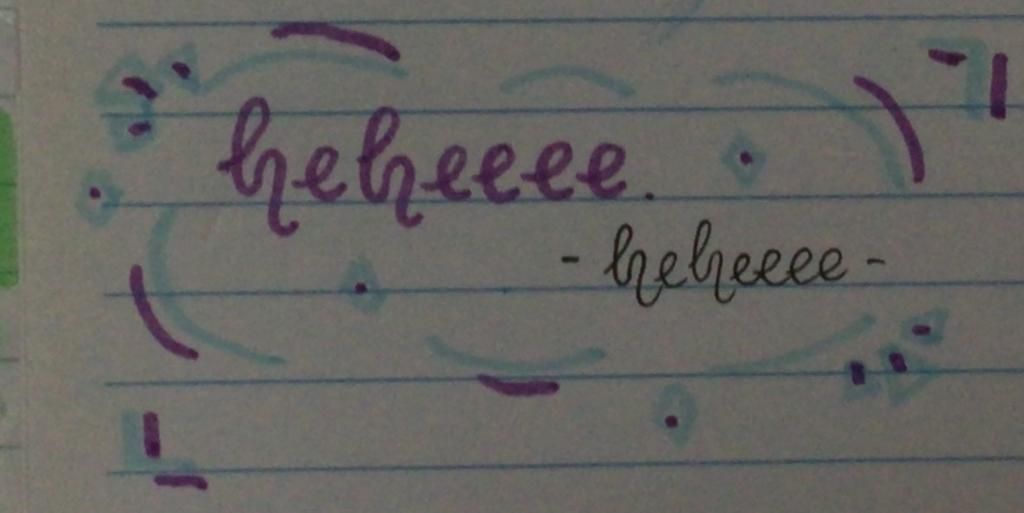 heheeee.
- heheeee -